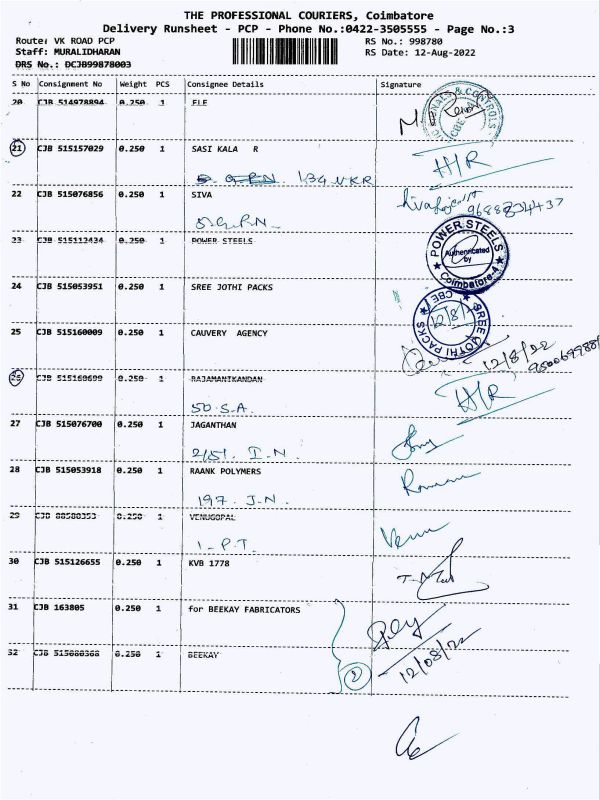 THE PROFESSIONAL COURIERS, Coimbatore
Delivery Runsheet - PCP - Phone No.:0422-3505555 - Page No.:3
Route: VK ROAD PCP
RS No.: 998780
Staff: MURALIDHARAN
RS Date: 12-Aug-2022
DRS No.: DCJB99878003
S No Consignment No Weight PCS Consignee Details Signature
20 CJB 514978894 0.250 1 ELE
21 CJB 515157029 0.250 1 SASI KALA R
134 NKR H/R
22 CJB 515076856 0.250 1 SIVA
9688
23 CJB 515112434 0.250 1 POWER STEELS
POWER STEELS
Authenticated
by
Coimbatore-4
24 CJB 515053951 0.250 1 SREE JOTHI PACKS
SREE JOTHI PACKS CBE
12/8/
25 CJB 515160009 0.250 1 CAUVERY AGENCY
12/8/22
26 CJB 515160699 0.250 1 RAJAMANIKANDAN
50 S.A. H/R
27 CJB 515076700 0.250 1 JAGANTHAN
2/51. I.N.
28 CJB 515053918 0.250 1 RAANK POLYMERS
197. J.N.
29 CJB 88580353 0.250 1 VENUGOPAL
1- P.T. Venu
30 CJB 515126655 0.250 1 KVB 1778
31 CJB 163805 0.250 1 for BEEKAY FABRICATORS
32 CJB 515080368 0.250 1 BEEKAY
2 12/08/22